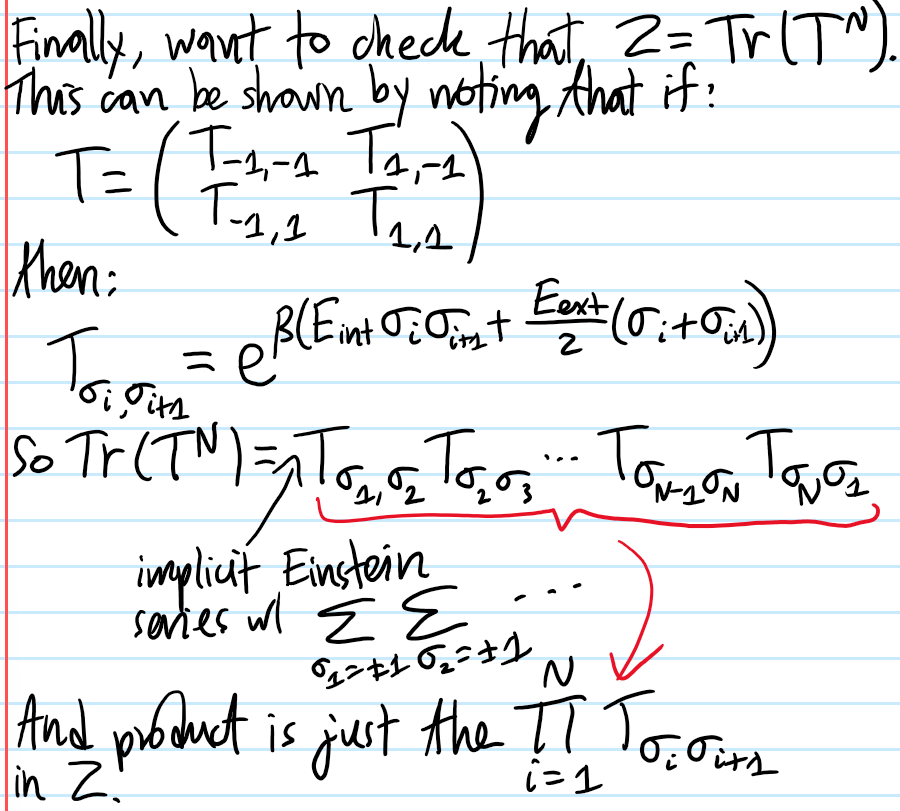 Finally, want to check that Z = Tr(T^N).
This can be shown by noting that if:
T = ( T_{-1,-1} T_{1,-1}
T_{-1,1} T_{1,1} )
then:
T_{σ_i,σ_{i+1}} = e^{β(E_{int} σ_i σ_{i+1} + \frac{E_{ext}}{2}(σ_i + σ_{i+1}))}
So Tr(T^N) = T_{σ_1,σ_2} T_{σ_2 σ_3} ... T_{σ_{N-1} σ_N} T_{σ_N σ_1}
implicit Einstein
series w/ ∑_{σ_1=±1} ∑_{σ_2=±1} ...
And product is just the ∏_{i=1}^{N} T_{σ_i σ_{i+1}}
in Z.